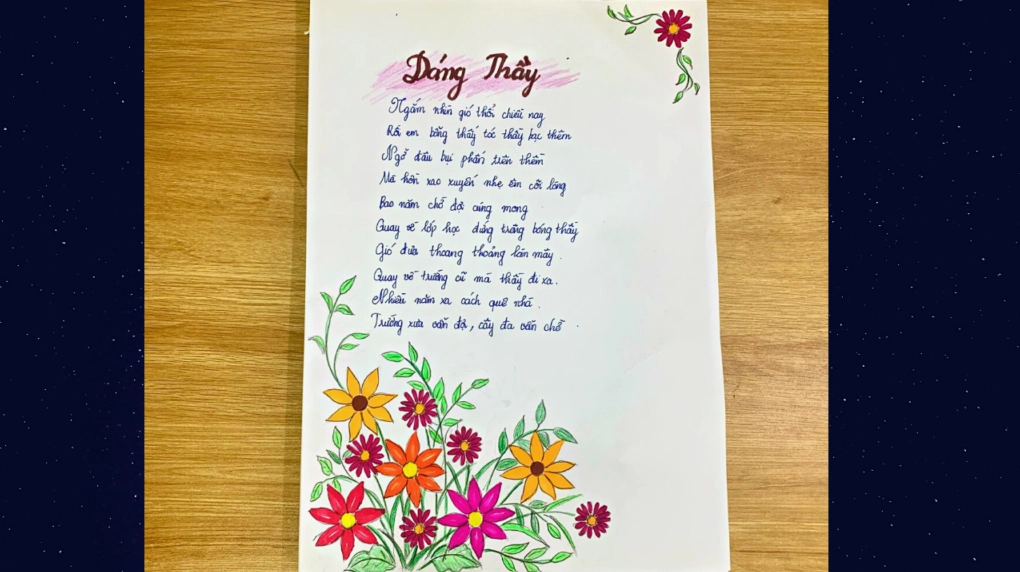 Dáng Thầy
Ngắm nhìn gió thổi chiều nay
Rồi em bỗng thấy tóc thầy bạc thêm
Ngỡ đâu bụi phấn trên thềm
Mà hồn xao xuyến nhẹ êm cõi lòng
Bao năm chờ đợi cũng mong
Quay về lớp học đứng trông bóng thầy
Gió đưa thoang thoảng làn mây.
Quay về trường cũ mà thầy đi xa.
Nhiều năm xa cách quê nhà.
Trường xưa vẫn đợi, cây đa vẫn chờ.